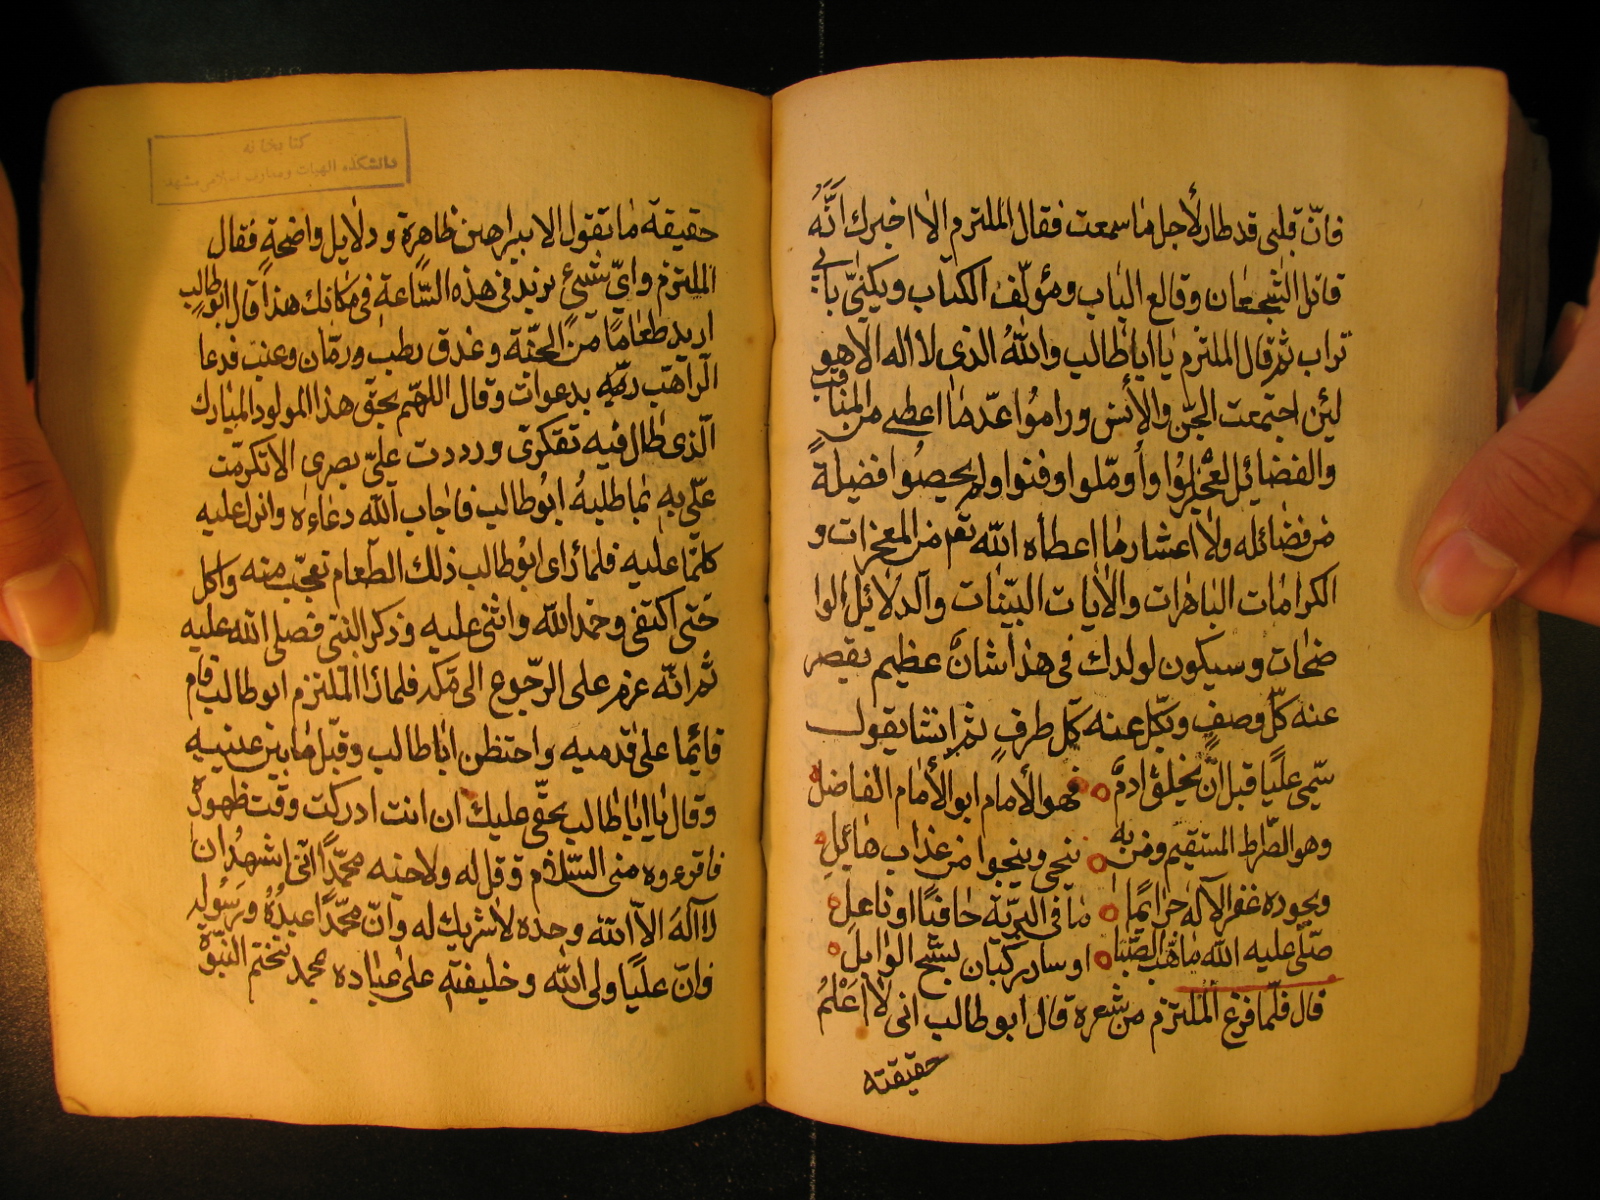 فانّ قلبى قد طار لأجل ما سمعت فقال الملترم الا اخبرك انّه
قاتل الشجعان وقالع الباب ومؤلّف الكتاب ويكنّى بابي
تراب ثم قال الملترم يا ابا طالب والله الذى لا اله الا هو
لئن اجتمعت الجنّ والأنس وراموا عدّ ما اعطى من المناقب
والفضايل لعجزوا وأوملوا وفنوا ولم يحصوا فضيلة
من فضائله ولا اعشار ما اعطاه الله تع من المعجزات و
الكرامات الباهرات والأيات البيّنات والدلائل الوا
ضحات وسيكون لولدك فى هذا شان عظيم يقصر
عنه كلّ وصف ويكل عنه كل طرف ثم انشا يقول
سمّى عليّا قبل انّ يخلق ادم فهو الأمام ابو الأمام الفاضل
وهو الصّراط المستقيم ومن به ينجى وينجوا من عذاب هائل
وبجوده غفر الآله جرايما ما فى البريّة حافيا او ناعل
صلّى عليه الله ما هب الصّبا او سار ركبان بسّح الوابل
قال فلمّا فرغ الملترم من شعره قال ابو طالب انى لا اعلم
حقيقته
كتابخانه
دانشكده الهيات ومعارف اسلامى مشهد
حقيقة ما تقول الا ببراهين ظاهرة ودلايل واضحة فقال
الملترم واىّ شيئ تريد فى هذه السّاعة فى مكانك هذا قال ابو طالب
اريد طعاما من الجنّة وعذق رطب ورمّان وعنب فدعا
الراهب ربّه بدعوات وقال اللهم بحق هذا المولود المبارك
الّذى طال فيه تفكرى ورددت علىّ بصرى الا تكرمت
علّى به بما طلبه ابو طالب فاجاب الله دعاءه وانزل عليه
كلّما عليه فلما راى ابو طالب ذلك الطّعام تعجّب منه واكل
حتى اكتفى وحمد الله واثنى عليه وذكر النبى فصلى الله عليه
ثم انّه عزم على الرجوع الى مكه فلما را الملترم ابو طالب قام
قائما على قدميه واحتظن ابا طالب وقبّل ما بين عينيه
وقال يا ابا طالب بحقّى عليك ان انت ادركت وقت ظهوره
فاقرءوه منى السّلام وقل له ولاخيه محمّدا انى اشهد ان
لا اله الا الله وحده لا شريك له وانّ محمّدا عبده ورسوله
وانّ عليّا ولى الله وخليفته على عباده بمحمد تختم النبوّة